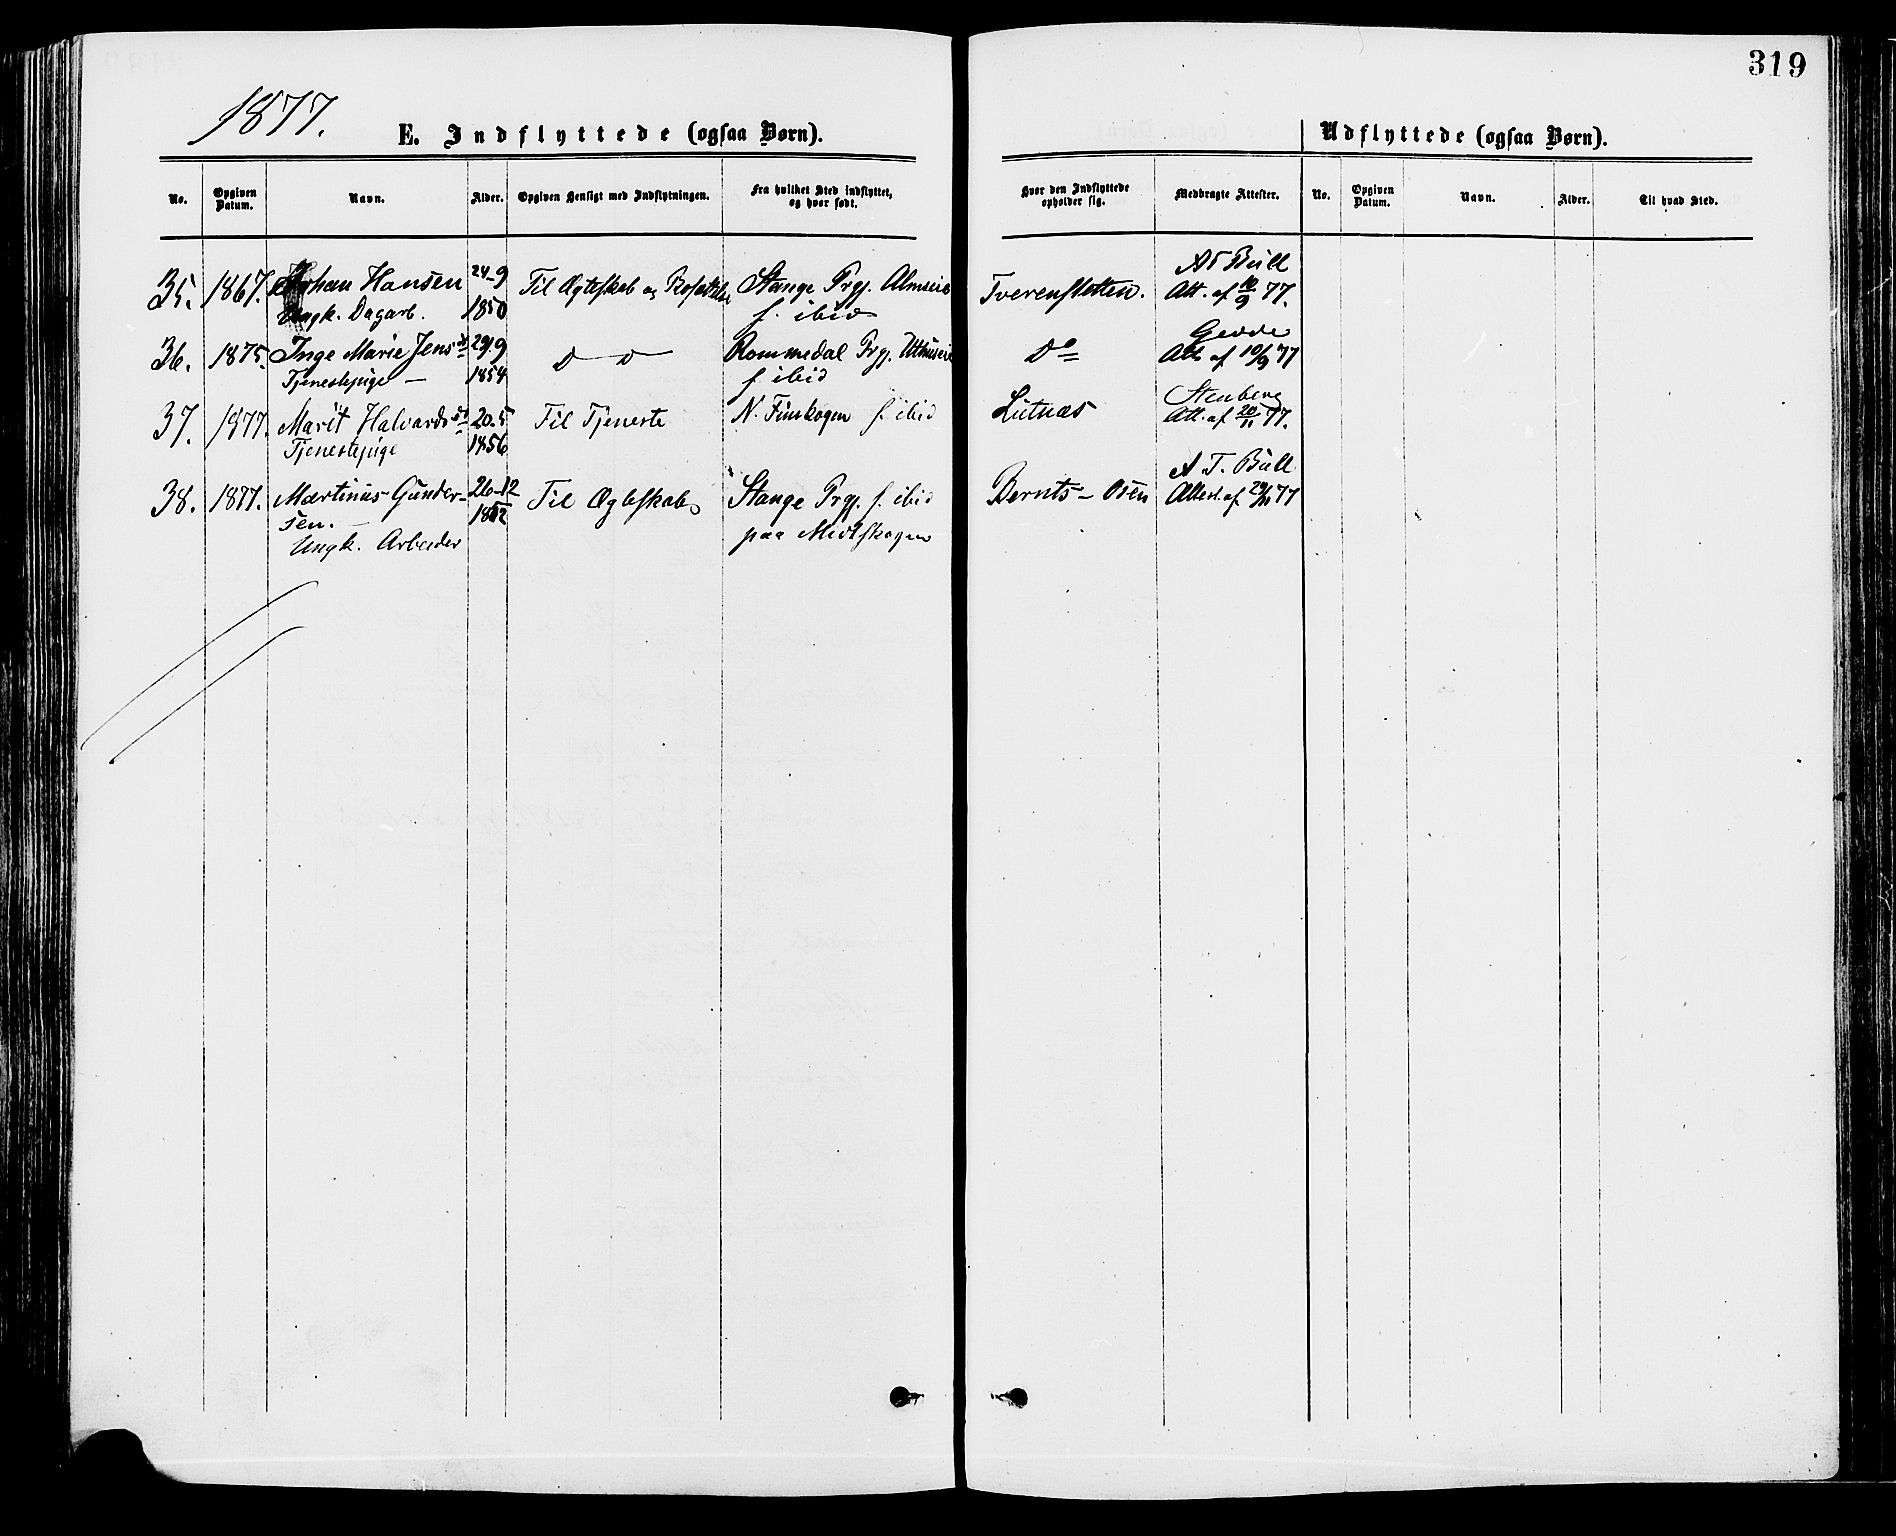 319
1877.
E. Indflyttede (ogsaa Børn).
Udflyttede (ogsaa Børn).
No.
Opgiven Datum.
Navn.
Alder.
Opgiven Hensigt med Indflytningen.
Fra hvilket Sted indflyttet, og hvor født.
Hvor den Indflyttede opholder sig.
Medbragte Attester.
No.
Opgiven Datum.
Navn.
Alder.
Til hvad Sted.
35. 1867. Johan Hansen 24-9 Til Ægteskab og Bosættelse Stange Prgj. Tverensletten. A T Bull
Ungk. Dagarb. 1850 f. ibid Att. af 10/9 77.
36. 1875. Inge Marie Jensd 29/9 D D Rommedal Prgj. Do Gedde
Tjenestepige — 1854 f ibid Att. af 10/9 77
37. 1877. Marit Halvardsd 20-5 Til Tjeneste N. Finskogen f. ibid Lutnæs Stenberg
Tjenestepige 1856 Att. af 20/11 77.
38. 1877. Martinus Gunder- 26-12 Til Ægteskab Stange Prgj. f. ibid Bernts-Osen A. T. Bull
sen. — 1852 paa Midtskogen Attest. af 29/11 77
Ungk. Arbeider